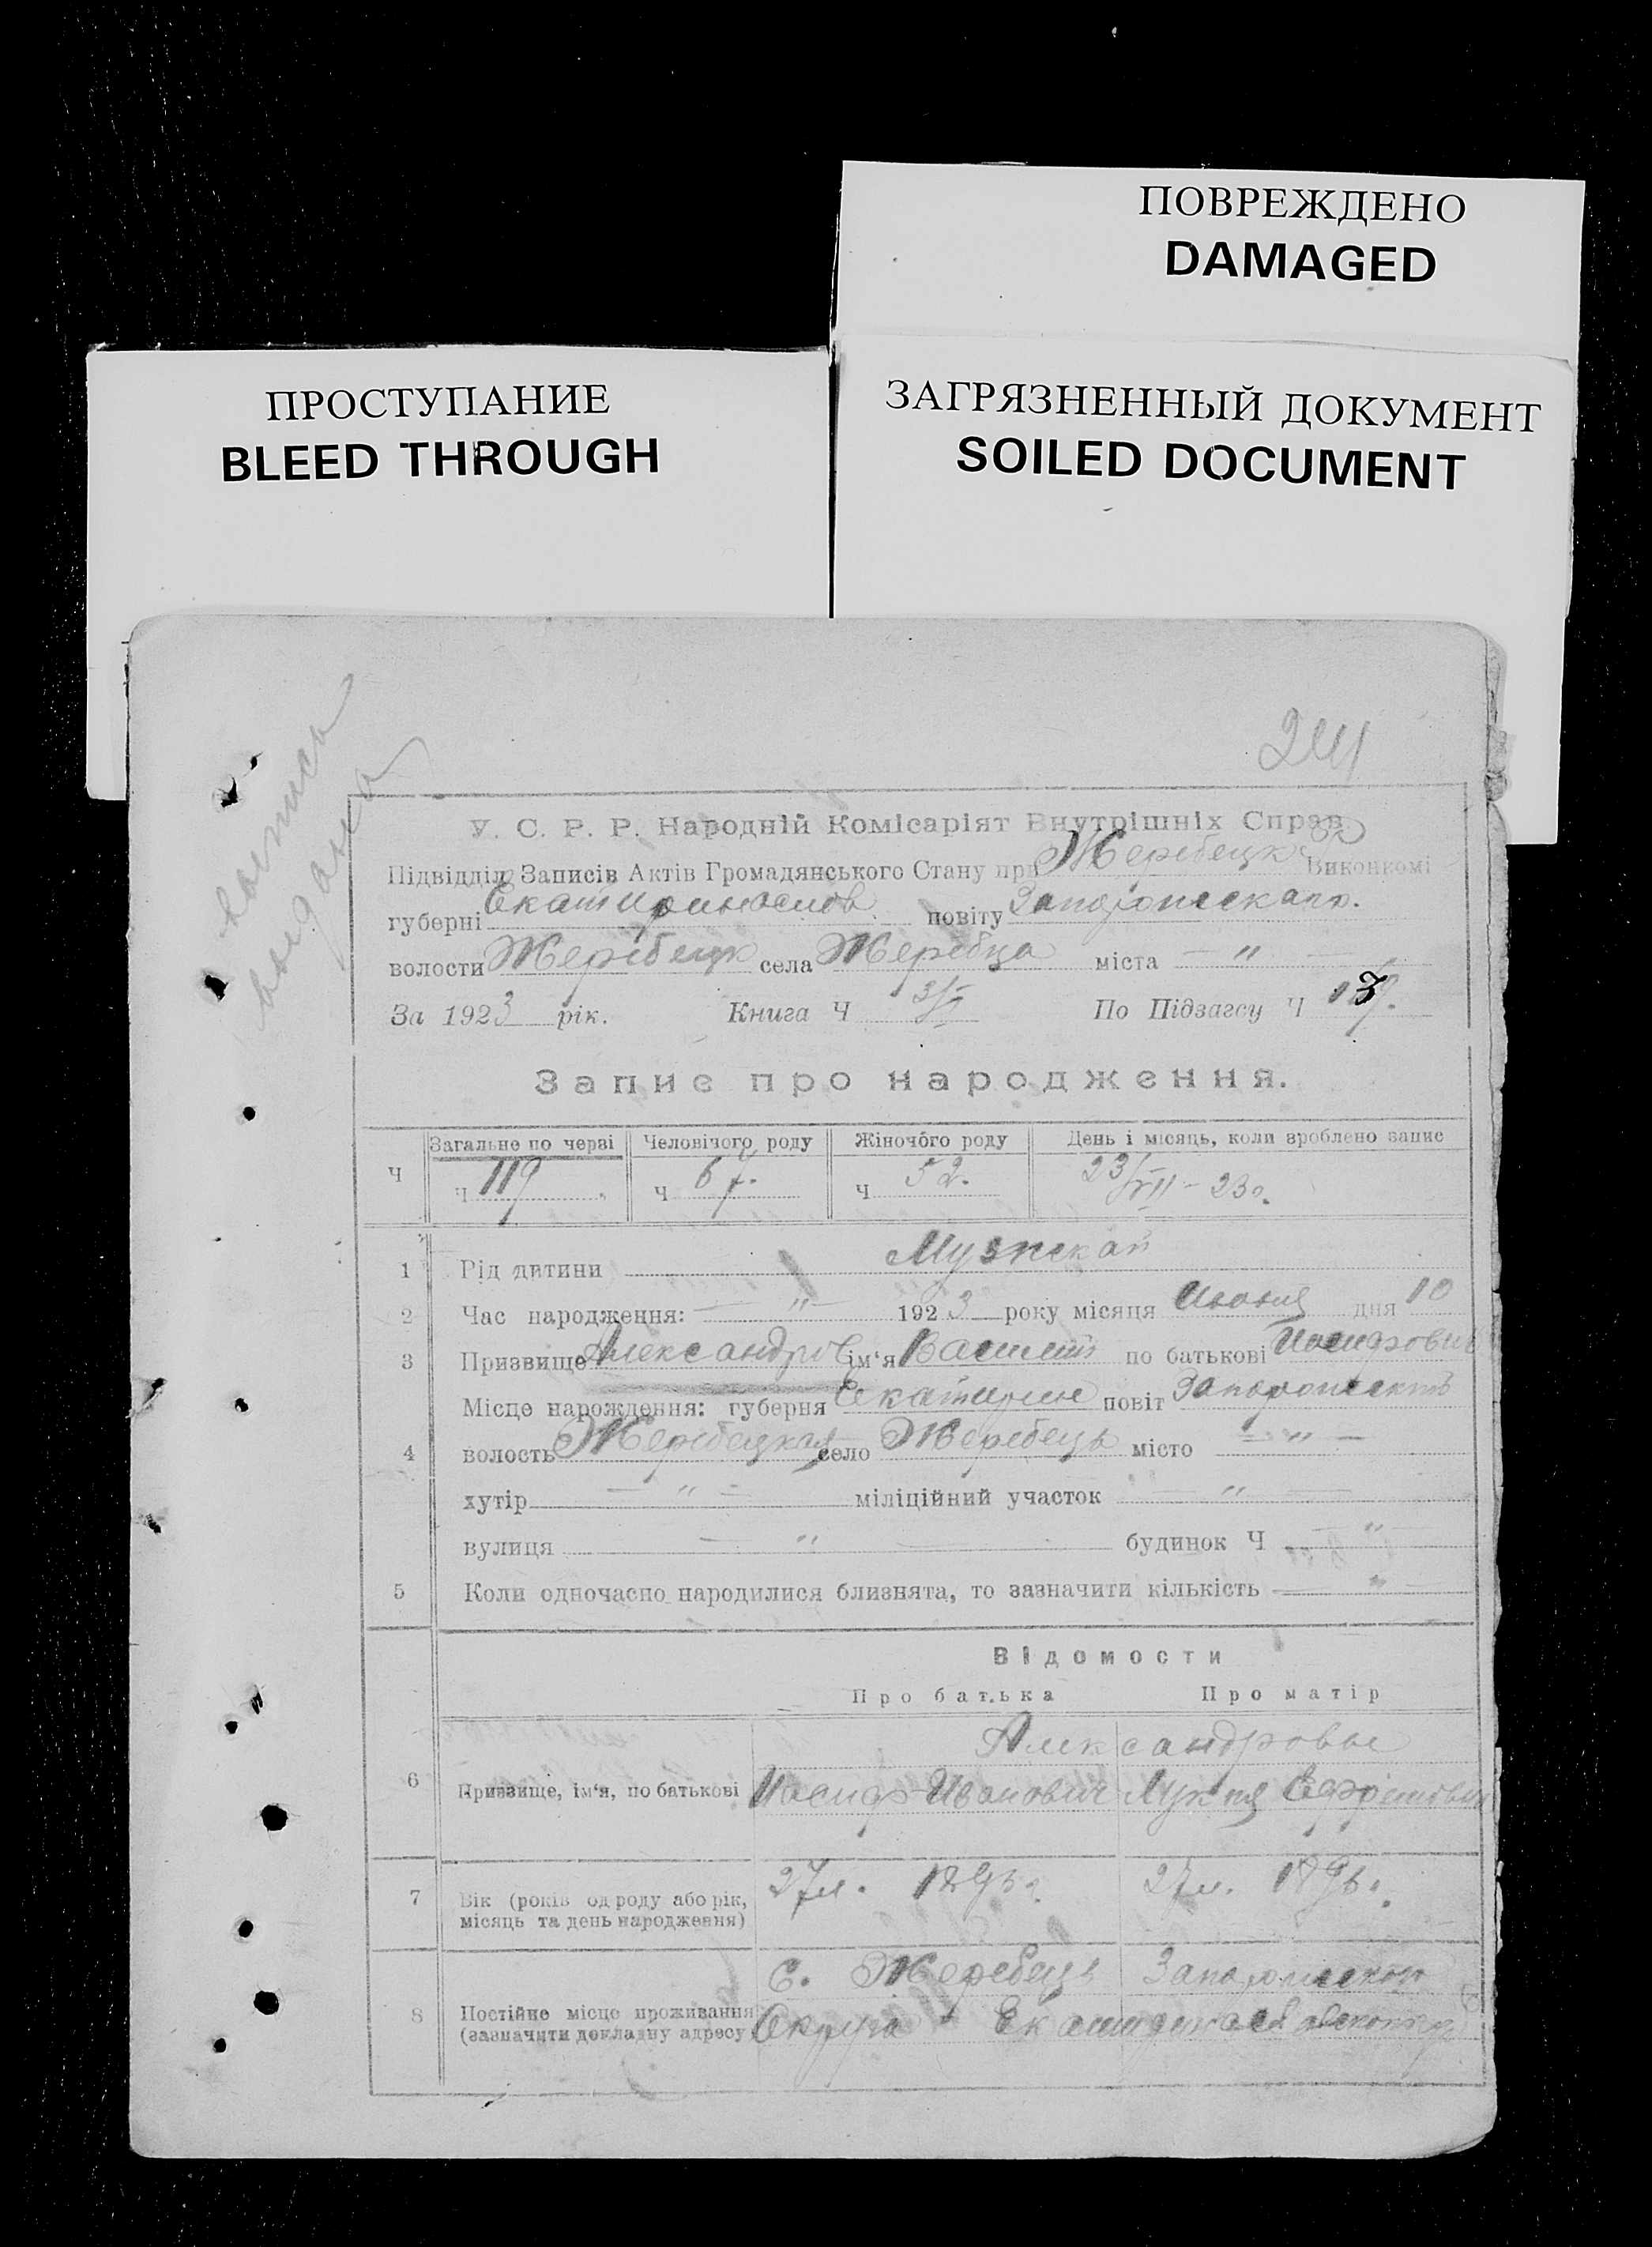 ПОВРЕЖДЕНО
DAMAGED
ПРОСТУПАНИЕ
BLEED THROUGH
ЗАГРЯЗНЕННЫЙ ДОКУМЕНТ
SOILED DOCUMENT
выпись
выдана
У. С. Р. Р. Народній Комісаріят Внутрішніх Справ
Підвідділ Записів Актів Громадянського Стану при Жеребецк Виконкомі
губерні Екатиринослов повіту Запорожскаго.
волости Жеребецк села Жеребца міста — " —
За 1923 рік. Книга Ч По Підзагсу Ч
Запис про народження.
Ч Загальне по черві Человічого роду Жіночого роду День і місяць, коли зроблено запис
Ч 119 Ч 67. Ч 52. 23/VII - 23г.
1 Рід дитини Мужскай
2 Час народження: — " — 1923 року місяця Июня дня 10
3 Призвище Александров ім'я Василий по батькові Иосифович
Місце нарождення: губерня Екатирин повіт Запорожскт
4 волость Жеребецкая село Жеребець місто — " —
хутір — " — міліційний участок — " —
вулиця — " — будинок Ч — " —
5 Коли одночасно народилися близнята, то зазначити кількість — " —
Відомости
Про батька Про матір
Александровы
6 Призвище, ім'я, по батькові Иосиф Иванович Лукия
7 Вік (років од роду або рік, місяць та день народження) 27л. 27л. 1896.
8 Постійне місце проживання (зазначити докладну адресу) С. Жеребець
Округа